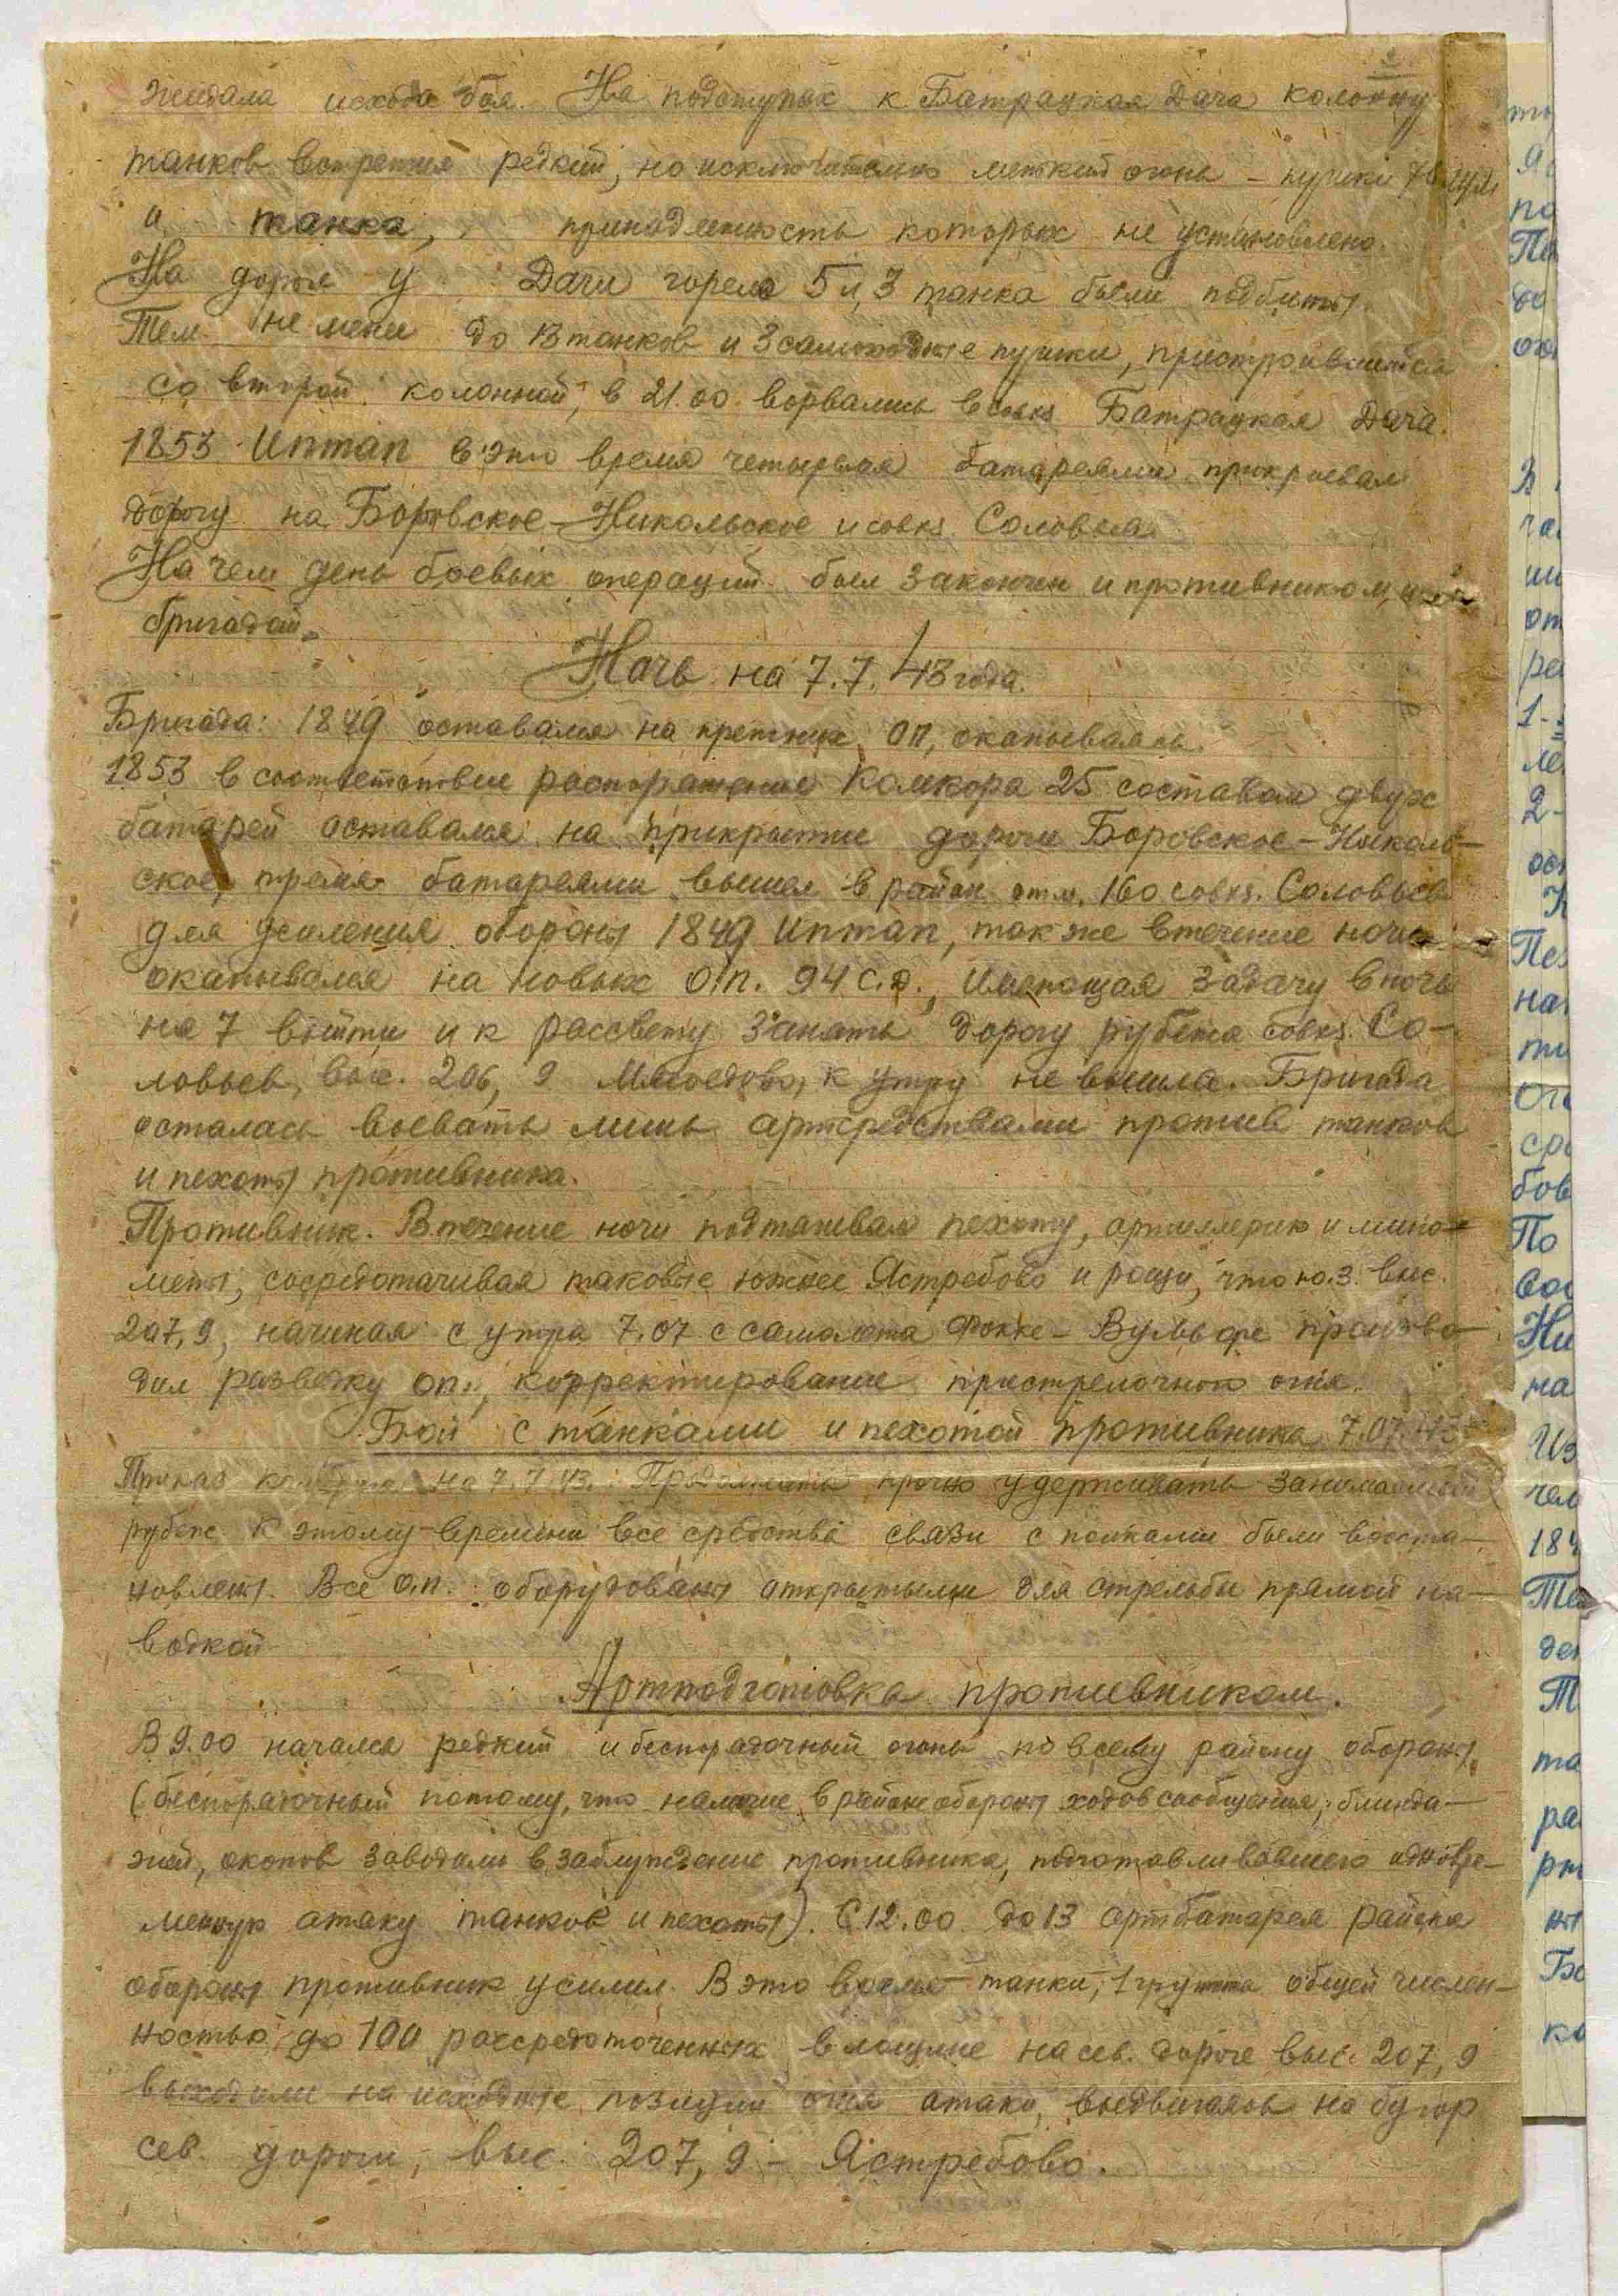 жидала исхода боя. На подступах к Батрацкая Дача колонну
танков встретил редкий, но исключительно меткий огонь – пушки 76 мм
и танка, принадлежность которых не установлена.
На дороге у Дачи горело 5 и 3 танка были подбиты.
Тем не менее до 13 танков и 3 самоходные пушки, пристроившиеся
со второй колонной, в 21.00 ворвались в совхз Батрацкая Дача.
1853 иптап в это время четырьмя батареями прикрывал
дорогу на Боровское-Никольское и совхз Соловьев.
На чем день боевых операций был закончен и противником, и
бригадой.
Ночь на 7.7.43 года.
Бригада: 1849 оставался на прежних ОП, окапываясь.
1853 в соответствие распоряжение Комкора 25 составом двух
батарей оставался на прикрытии дороги Боровское – Николь-
ское, тремя батареями вышел в район отм. 160 совхз. Соловьев
для усиления обороны 1849 иптап, также втечение ночи
окапывался на новых О.П. 94 С.Д., имеющая задачу в ночь
на 7 выйти и к рассвету занять дорогу рубежа совхз. Со-
ловьев, выс. 206,9 Мясоедово, к утру не вышла. Бригада
осталась воевать лишь артсредствами против танков
и пехоты противника.
Противник. Втечение ночи подтягивая пехоту, артиллерию и мино-
меты, сосредотачивая таковые южнее Ястребово и рощи, что ю.з. выс.
207,9, начиная с утра 7.07 с самолета Фокке-Вульфе произво-
дил разведку оп., корректирование пристрелочного огня.
Бой с танками и пехотой противника 7.07.43
Приказ на 7.7.43.: Продолжать прочно удерживать занимаемый
рубеж. К этому времени все средства связи с полками были восста-
новлены. Все о.п. оборудованы открытыми для стрельбы прямой на-
водкой
Артподготовка противником.
В 9.00 начался редкий и беспорядочный огонь по всему району обороны
(беспорядочный потому, что наличие в районе обороны ходов сообщения, блинда-
жей, окопов заводили в заблуждение противника, подготавливавшего одновре-
менную атаку танков и пехоты). С 12.00 до 13 артбатарея района
обороны противник усилил. В это время танки, 1 группа общей числен-
ностью до 100 рассредоточенных в лощине на сев. дороге выс. 207,9
выходили на исходные позиции для атаки, выдвигаясь на бугор
сев. дороги, выс. 207,9 – Ястребово.